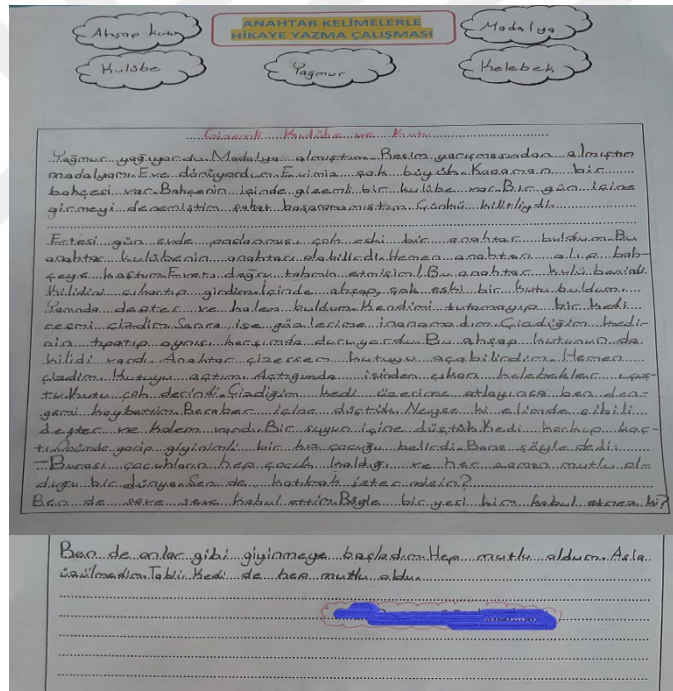 Ahşap kutu
ANAHTAR KELİMELERLE
HİKAYE YAZMA ÇALIŞMASI
Madalya
Kulübe
Yağmur
Kelebek
Gizemli Kulübe ve Kutu
Yağmur yağıyordu. Madalya almıştım. Resim yarışmasından almıştım
madalyamı. Eve dönüyordum. Evimiz çok büyük. Kocaman bir
bahçesi var. Bahçenin içinde gizemli bir kulübe var. Bir gün içine
girmeyi denemiştim fakat başaramamıştım. Çünkü kilitliydi.
Ertesi gün evde paslanmış çok eski bir anahtar buldum. Bu
anahtar kulübenin anahtarı olabilirdi. Hemen anahtarı alıp bah-
çeye koştum. Evet doğru tahmin etmişim! Bu anahtar kulübenindi.
Kilidini çıkartıp girdim. İçinde ahşap, çok eski bir kutu buldum.
Yanında defter ve kalem buldum. Kendimi tutamayıp bir kedi
resmi çizdim. Sonra ise gözlerime inanamadım. Çizdiğim kedi-
nin tıpatıp aynısı karşımda duruyordu. Bu ahşap kutunun da
kilidi vardı. Anahtar çizersem kutuyu açabilirdim. Hemen
çizdim. Kutuyu açtım. Açtığımda içinden çıkan kelebekler uçuş-
tu. Kutu çok derindi. Çizdiğim kedi üzerime atlayınca ben den-
gemi kaybettim. Beraber içine düştük. Neyse ki elimde sihirli
defter ve kalem vardı. Bir suyun içine düştük. Kedi korkup kaç-
tı. Önümde garip giyinimli bir kız çocuğu belirdi. Bana şöyle dedi:
- Burası çocukların hep çocuk kaldığı ve her zaman mutlu ol-
duğu bir dünya. Sen de katılmak ister misin?
Ben de seve seve kabul ettim. Böyle bir yeri kim kabul etmez ki?
Ben de onlar gibi giyinmeye başladım. Hep mutlu oldum. Asla
üzülmedim. Tabii kedi de hep mutlu oldu.